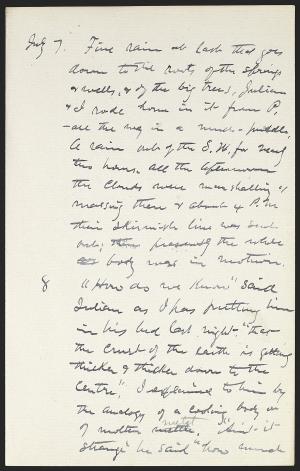 July 7. Fine rain at last that goes
down to the roots of the springs
& wells, & of the big trees, Julian
& I rode home in it from P.
- all the way in a mud-puddle,
A rain out of the S.W. for many
hours. all the afternoon
the clouds were marshalling &
massing there & about 4 P.M.
their skirmish line was sent
out; presently the whole
body was in motion.
8 "How do we know" said
Julian as I was putting him
in his bed last night, "that
the crust of the earth is getting
thicker & thicker down to the
Centre". I explained to him by
the analogy of a cooling body
of molten metal. "Ain't it
strange" he said "how much